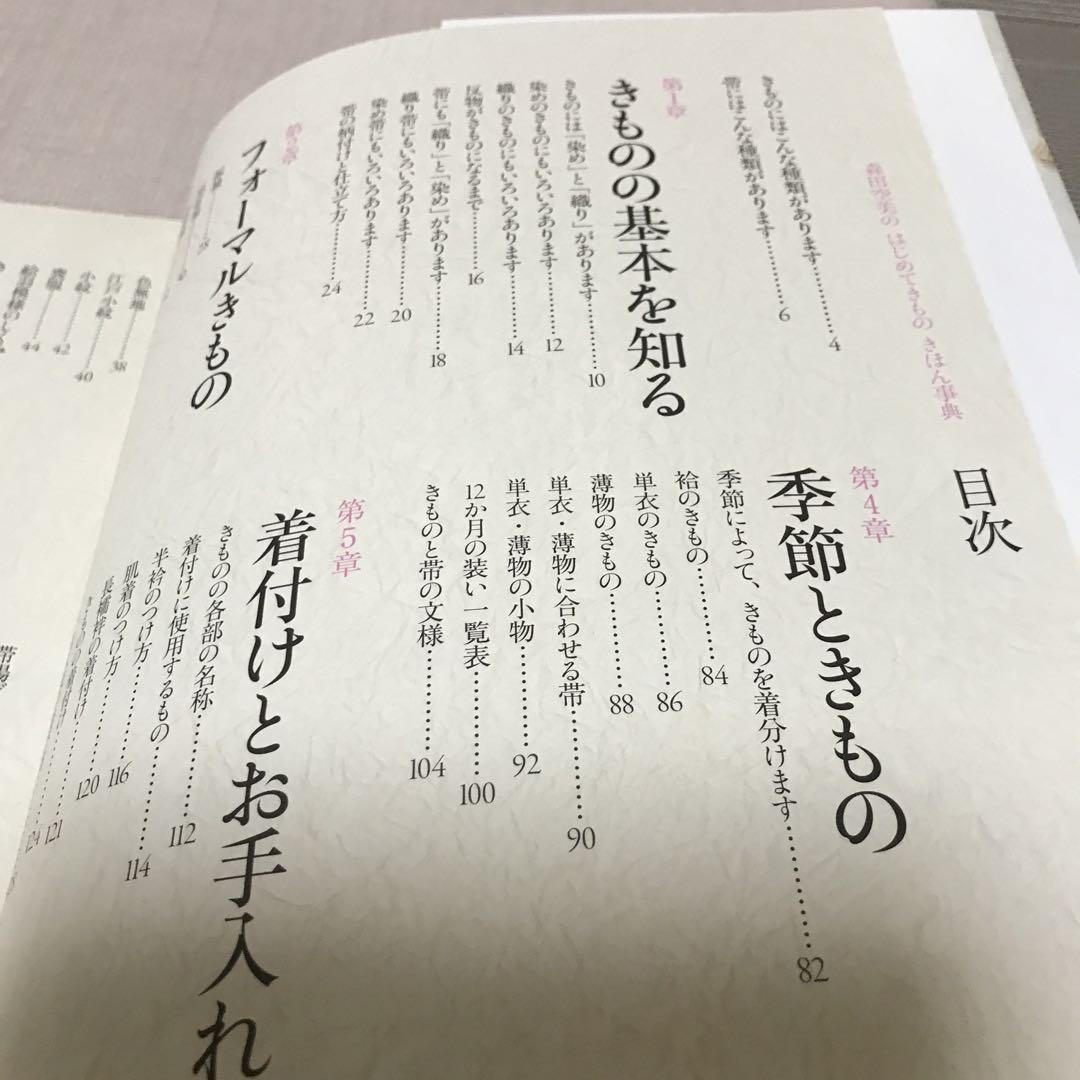 目次
森田空美の はじめてきもの きほん事典
きものにはこんな種類があります………4
帯にはこんな種類があります………6
第1章
きものの基本を知る
きものには「染め」と「織り」があります………10
染めのきものにもいろいろあります………12
織りのきものにもいろいろあります………14
反物がきものになるまで………16
帯にも「織り」と「染め」があります………18
織り帯にもいろいろあります………20
染め帯にもいろいろあります………22
帯の柄付けと仕立て方………24
第2章
フォーマルきもの
第4章
季節ときもの
季節によって、きものを着分けます………82
袷のきもの………84
単衣のきもの………86
薄物のきもの………88
単衣・薄物に合わせる帯………90
単衣・薄物の小物………92
12か月の装い一覧表………100
きものと帯の文様………104
第5章
着付けとお手入れ
きものの各部の名称………112
着付けに使用するもの………114
半衿のつけ方………116
肌着のつけ方………120
長襦袢の着付け………121
124
色無地
38
江戸小紋
40
小紋
42
44